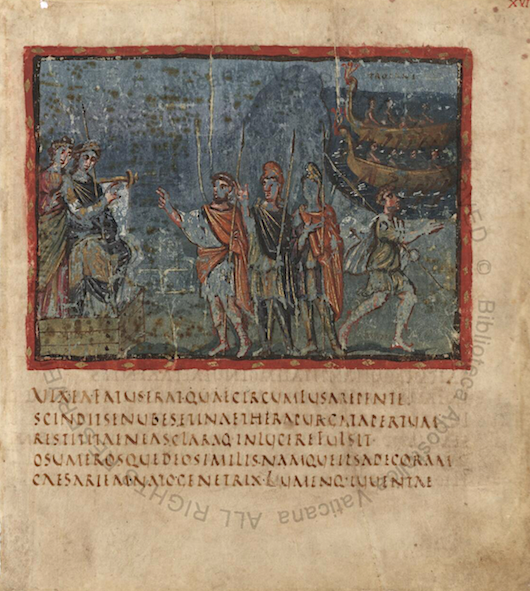 VIXEAFATUSERATQUAECIRCUMFUSAREPENTE
SCINDITSENUBESETINAETHERAPURGATAPERTUM
RESTITITAENEASCLARAQ·INLUCEREFULSIT
OSUMEROSQUEDEOSIMILIS·NAMQUEIPSADECORAM
CAESARIEMNATOGENETRIX·LUMENQ·IUVENTAE
© Biblioteca Apostolica Vaticana ALL RIGHTS RESERVED